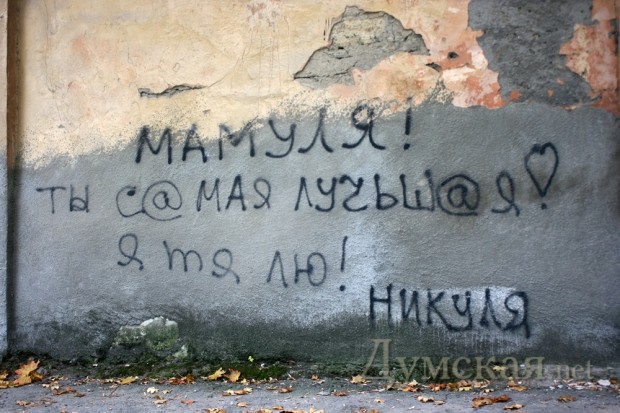 МАМУЛЯ!
ТЫ С@МАЯ ЛУЧЬШ@Я!
Я ТЯ ЛЮ!
НИКУЛЯ
Думская.net